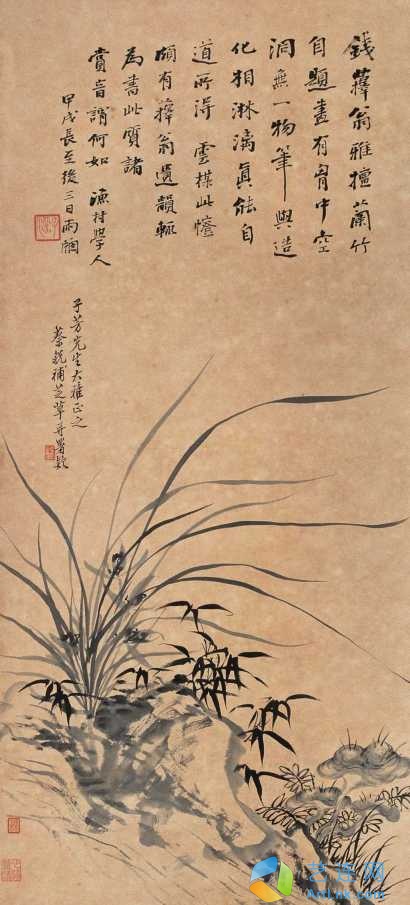 錢蘀翁雅擅蘭竹
自題畫有胷中空
洞無一物筆與造
化相淋漓真能自
道所得雲楳此幀
頗有蘀翁遺韻輒
為書此質諸
賞音謂何如 漁村學人
甲戌長至後三日雨牕
子芳先生大雅正之
蔡銑補芝草并署款
艺连网